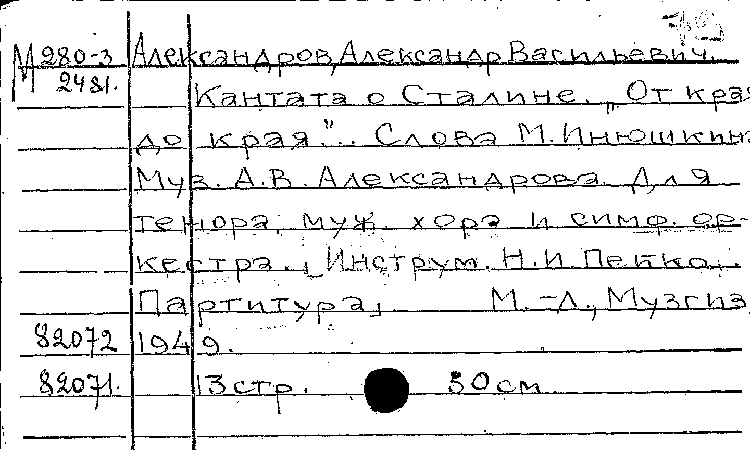 М 280-3 Александров, Александр Васильевич.
2481. Кантата о Сталине. „От края
до края". Слова М. Инюшкин
Муз. А.В. Александрова. Для
тенора, муж. хора и симф. ор-
кестра. [Инструм. Н.И. Пейко].
Партитура] М.-Л., Музгиз
82072 1949.
82071. 13 стр. 30 см